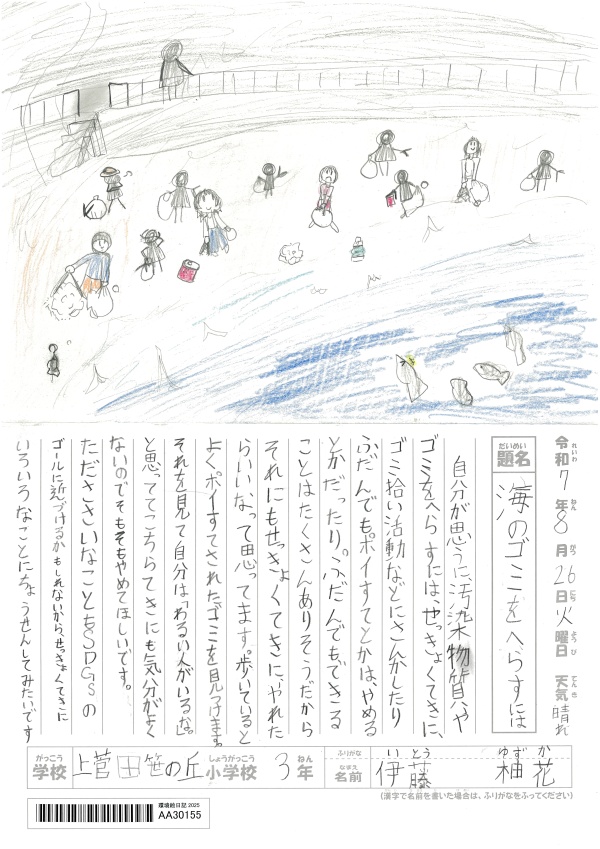 令和7年8月26日火曜日 天気晴れ
れいわ ねん がつ にち ようび てんき
だいめい
題名 海のゴミをへらすには
自分が思うに汚染物質や
ゴミをへらすには、せっきょくてきに、
ゴミ拾い活動などにさんかしたり
ふだんでもポイすてとかは、やめる
とかだったり。ふだんでもできる
ことはたくさんありそうだから
それにもせっきょくてきに、やれた
らいいなって思ってます。歩いていると
よくポイすてされたゴミを見つけます。
それを見て自分は「わるい人がいるな。」
と思っててこちらてきにも気分がよく
ないのでそもそもやめてほしいです。
たださいなことも、SDGsの
ゴールに近づけるかもしれないから、せっきょくてきに
いろいろなことにちょうせんしてみたいです
がっこう しょうがっこう ねん
学校 上菅田笹の丘 小学校 3年
ふりがな いとう ゆずか
なまえ
名前 伊藤 柚花
(漢字で名前を書いた場合は、ふりがなをふってください)
環境絵日記 2025
AA30155